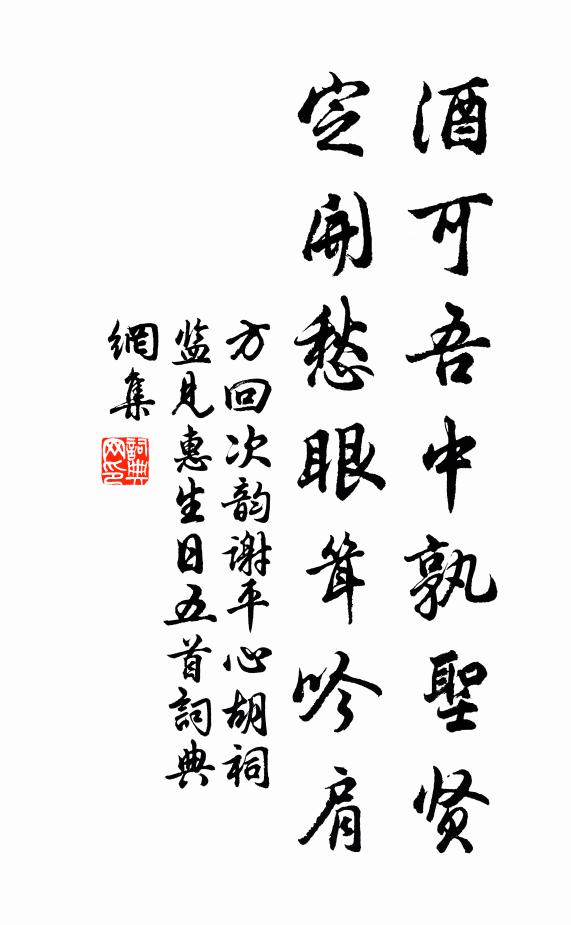 酒可吾中孰聖贤
定開愁眼耸吟肩
方回次韵谢平心胡祠
监見惠生日五首詞典
網集
詞典网印